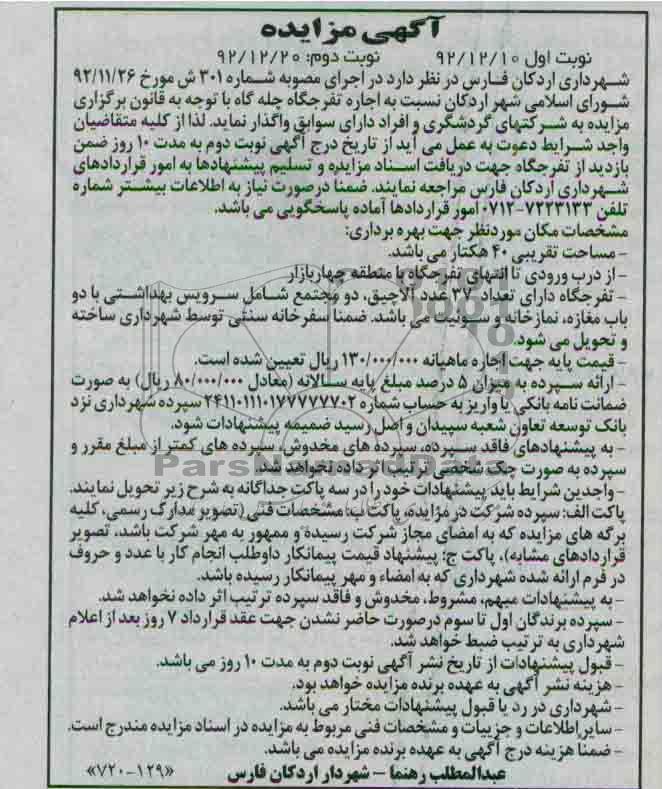 آگهی مزایده
نوبت اول ۹۲/۱۲/۱۰ نوبت دوم: ۹۲/۱۲/۲۰
شهرداری اردکان فارس در نظر دارد در اجرای مصوبه شماره ۳۰۱ ش مورخ ۹۲/۱۱/۲۶
شورای اسلامی شهر اردکان نسبت به اجاره تفرجگاه چله گاه با توجه به قانون برگزاری
مزایده به شرکتهای گردشگری و افراد دارای سوابق واگذار نماید. لذا از کلیه متقاضیان
واجد شرایط دعوت به عمل می آید از تاریخ درج آگهی نوبت دوم به مدت ۱۰ روز ضمن
بازدید از تفرجگاه جهت دریافت اسناد مزایده و تسلیم پیشنهادها به امور قراردادهای
شهرداری اردکان فارس مراجعه نمایند. ضمنا درصورت نیاز به اطلاعات بیشتر شماره
تلفن ۷۲۲۳۱۳۳-۰۷۱۲ امور قراردادها آماده پاسخگویی می باشد.
مشخصات مکان موردنظر جهت بهره برداری:
- مساحت تقریبی ۴۰ هکتار می باشد.
- از درب ورودی تا انتهای تفرجگاه با منطقه چهاربازار
- تفرجگاه دارای تعداد ۳۷ عدد آلاچیق، دو مجتمع شامل سرویس بهداشتی با دو
باب مغازه، نمازخانه و سوئیت می باشد. ضمنا سفرخانه سنتی توسط شهرداری ساخته
و تحویل می شود.
- قیمت پایه جهت اجاره ماهیانه ۱۳۰/۰۰۰/۰۰۰ ریال تعیین شده است.
- ارائه سپرده به میزان ۵ درصد مبلغ پایه سالانه (معادل ۸۰/۰۰۰/۰۰۰ ریال) به صورت
ضمانت نامه بانکی یا واریز به حساب شماره ۲۴۱۱۰۱۱۱۰۱۷۷۷۷۷۷۰۲ سپرده شهرداری نزد
بانک توسعه تعاون شعبه سپیدان و اصل رسید ضمیمه پیشنهادات شود.
- به پیشنهادهای فاقد سپرده، سپرده های مخدوش، سپرده های کمتر از مبلغ مقرر و
سپرده به صورت چک شخصی ترتیب اثر داده نخواهد شد.
- واجدین شرایط باید پیشنهادات خود را در سه پاکت جداگانه به شرح زیر تحویل نمایند.
پاکت الف: سپرده شرکت در مزایده، پاکت ب: مشخصات فنی (تصویر مدارک رسمی، کلیه
برگه های مزایده که به امضای مجاز شرکت رسیده و ممهور به مهر شرکت باشد، تصویر
قراردادهای مشابه)، پاکت ج: پیشنهاد قیمت پیمانکار داوطلب انجام کار با عدد و حروف
در فرم ارائه شده شهرداری که به امضاء و مهر پیمانکار رسیده باشد.
- به پیشنهادات مبهم، مشروط، مخدوش و فاقد سپرده ترتیب اثر داده نخواهد شد.
- سپرده برندگان اول تا سوم درصورت حاضر نشدن جهت عقد قرارداد ۷ روز بعد از اعلام
شهرداری به ترتیب ضبط خواهد شد.
- قبول پیشنهادات از تاریخ نشر آگهی نوبت دوم به مدت ۱۰ روز می باشد.
- هزینه نشر آگهی به عهده برنده مزایده خواهد بود.
- شهرداری در رد یا قبول پیشنهادات مختار می باشد.
- سایر اطلاعات و جزییات و مشخصات فنی مربوط به مزایده در اسناد مزایده مندرج است.
- ضمناً هزینه درج آگهی به عهده برنده مزایده می باشد.
عبدالمطلب رهنما - شهردار اردکان فارس «۷۲۰-۱۲۹»